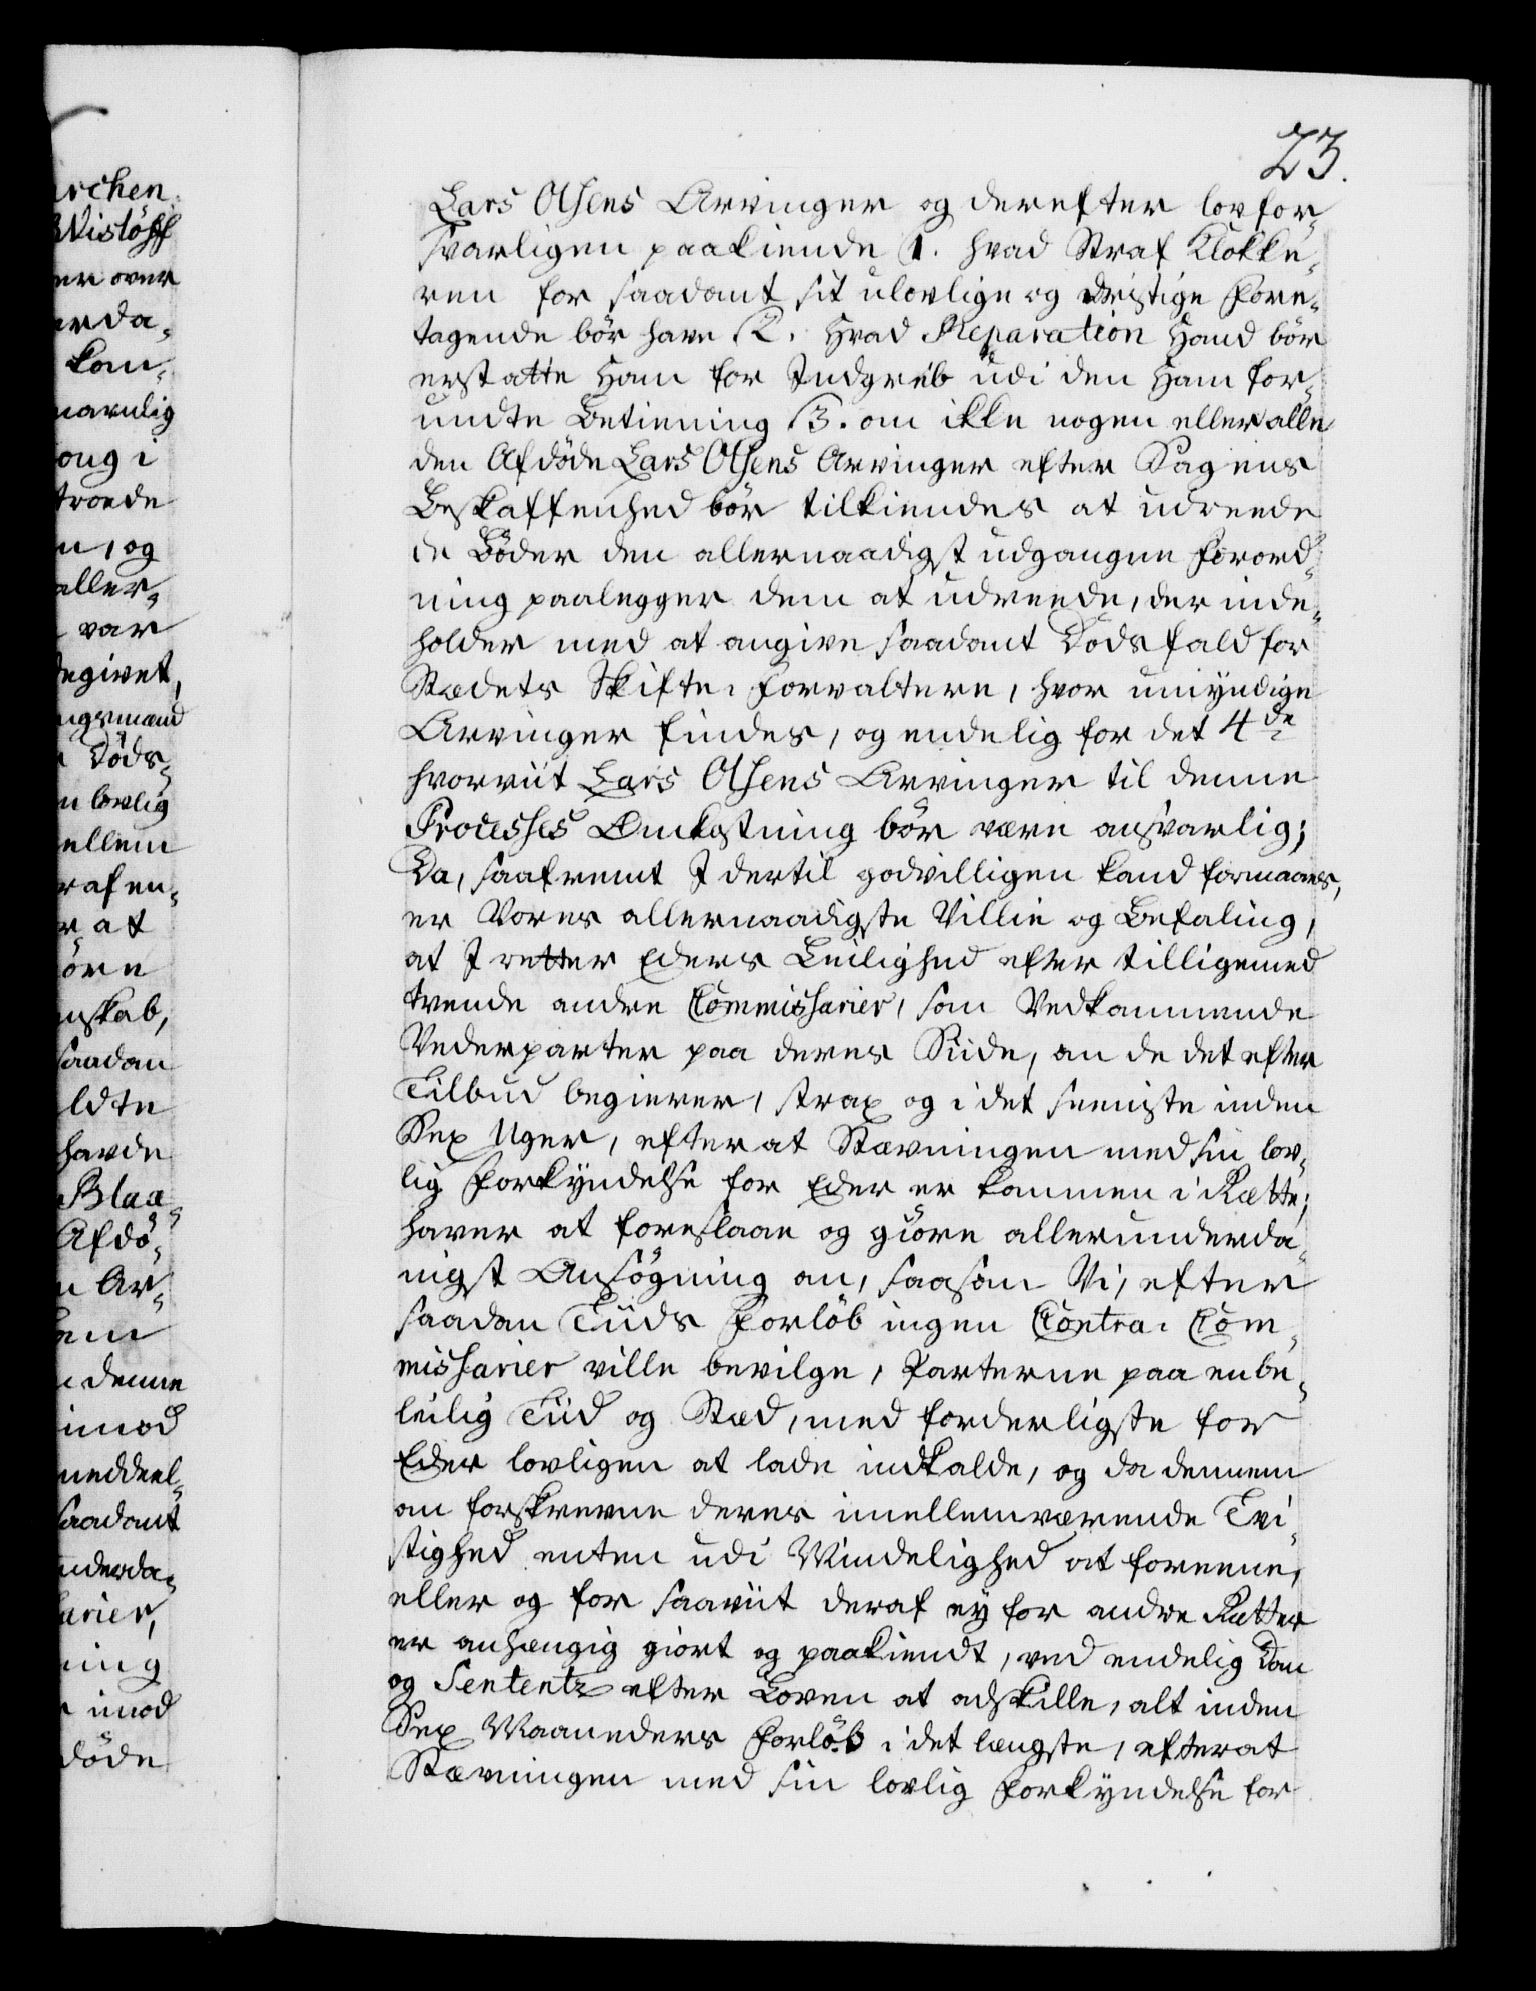 23.
Lars Olsens Arvinger og derefter lovfor-
svarligen paakiende 1. hvad Straf Klokke-
ren for saadant sit ulovlige og dristige Fore-
tagende bör have 2. Hvad Reparation Hand bör
erstatte Ham for Indgreb udi den Ham for-
undte Betiening 3. om ikke nogen eller alle
den Afdöde Lars Olsens Arvinger efter Sagens
Beskaffenhed bör tilkiendes at udreede
de Böder den allernaadigst udgangne Forord-
ning paalegger dem at udreede, der inde-
holder med at angive saadant Dödsfald for
Stædets Skifte-Forvaltere, hvor umyndige
Arvinger findes, og endelig for det 4de
hvorviit Lars Olsens Arvinger til denne
Processes Omkostning bör være ansvarlig;
Da, saafremt I dertil godvilligen kand formaaes,
er Vores allernaadigste Villie og Befaling,
at I retter Eders Leilighed efter tilligemed
trende andre Commissarier, som Vedkommende
Vederparter paa deres Siide, om de det efter
Tilbud begierer, strax og i det seeniste inden
Sex Uger, efter at Stævningen med sin lov-
lig Forkyndelse for Eder er kommen i Rætte,
haver at foreslaae og giöre allerunderda-
nigst Ansögning om, saasom Vi, efter
saadan Tiids Forlöb ingen Contra-Com-
missarier ville bevilge, Parterne paa en be-
leilig Tiid og Stæd, med forderligste for
Eder lovligen at lade indkalde, og da dennem
om forskrevne deres imellemværende Tvi-
stighed enten udi Mindelighed at foreene,
eller og for saaviit deraf ey for andre Rætter
er anhængig giort og paakiendt, ved endelig Dom
og Sententz efter Loven at adskille, alt inden
Sex Maaneders Forlöb i det længste, efterat
Stævningen med sin lovlig Forkyndelse for